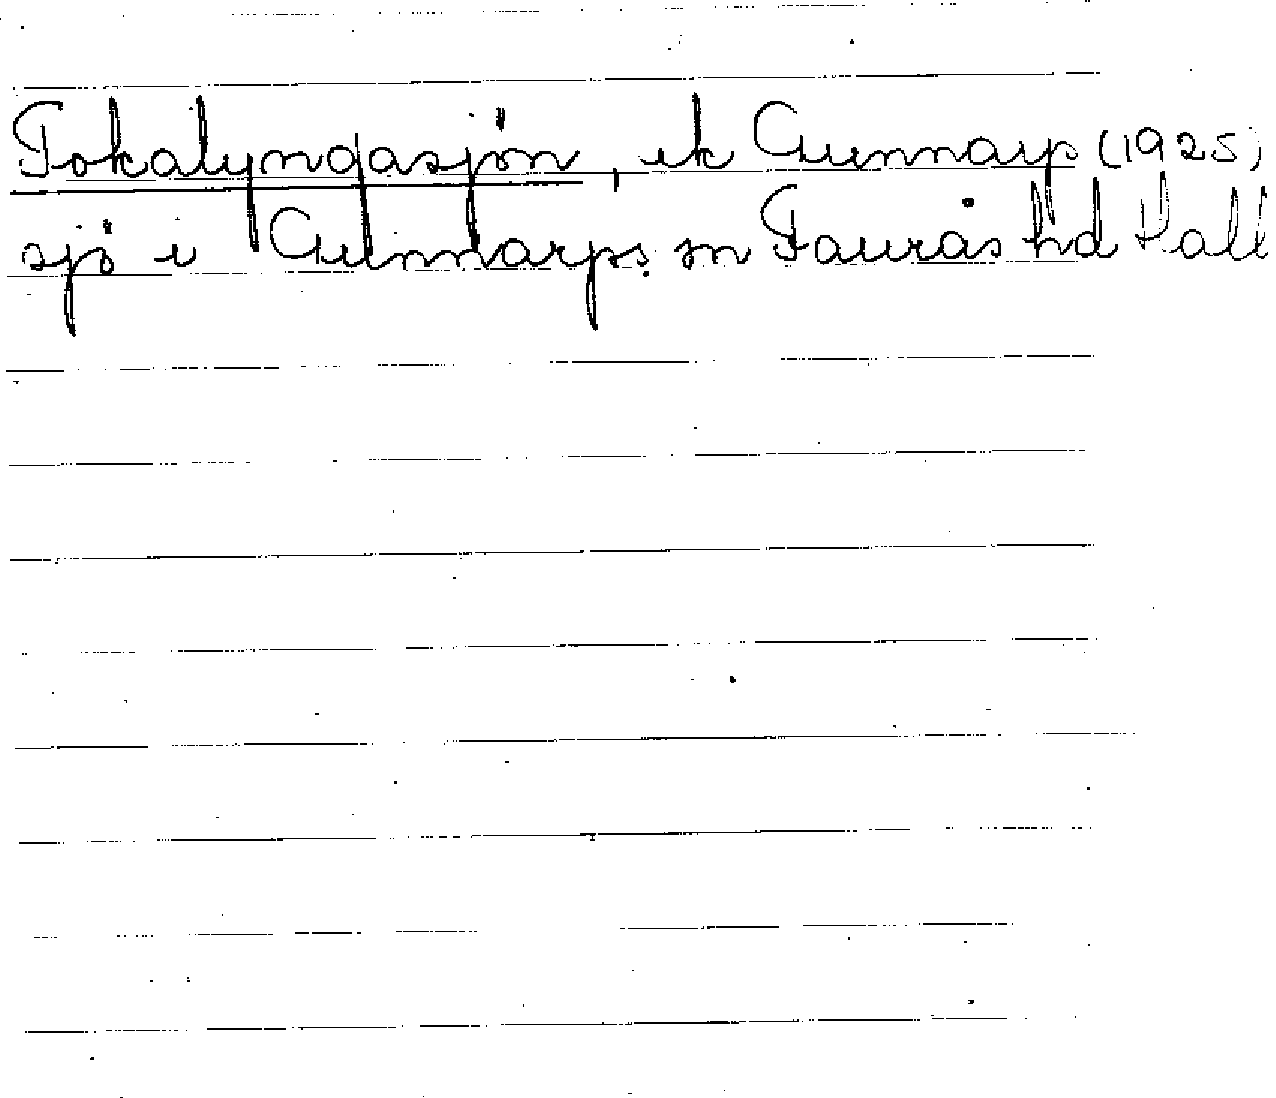 Tokalyngasjön, ek Gunnarp (1925)
sjö i Gunnarps sn Faurås hd Hall